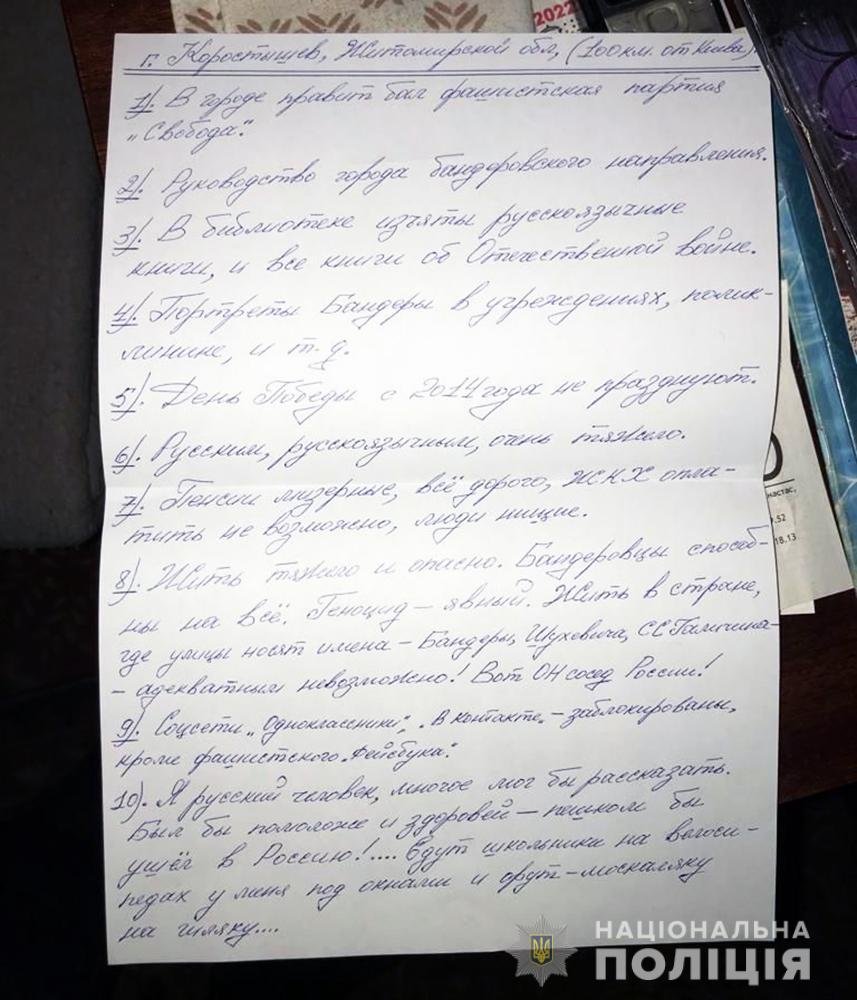 2022
г. Коростышев, Житомирской обл, (100 км. от Киева).
1). В городе правит бал фашистская партия
„Свобода".
2). Руководство города бандеровского направления.
3). В библиотеке изъяты русскоязычные
книги, и все книги об Отечественной войне.
4). Портреты Бандеры в учреждениях, полик-
линике, и т.д.
5). День Победы с 2014 года не празднуют.
6). Русским, русскоязычным, очень тяжело.
7). Пенсии мизерные, всё дорого, ЖКХ опла-
тить не возможно, люди нищие.
8). Жить тяжело и опасно. Бандеровцы способ-
ны на всё. Геноцид – явный. Жить в стране,
где улицы носят имена – Бандеры, Шухевича, СС Галичина –
– адекватным невозможно! Вот ОН сосед России!
9). Соцсети „Одноклассники", „В контакте" – заблокированы,
кроме фашистского „Фейсбука".
10). Я русский человек, многое мог бы рассказать.
Был бы помоложе и здоровей – пешком бы
ушёл в Россию!.... Едут школьники на велоси-
педах у меня под окнами и орут – москаляку
на гиляку....
настас,
9.52
18.13
НАЦІОНАЛЬНА
ПОЛІЦІЯ